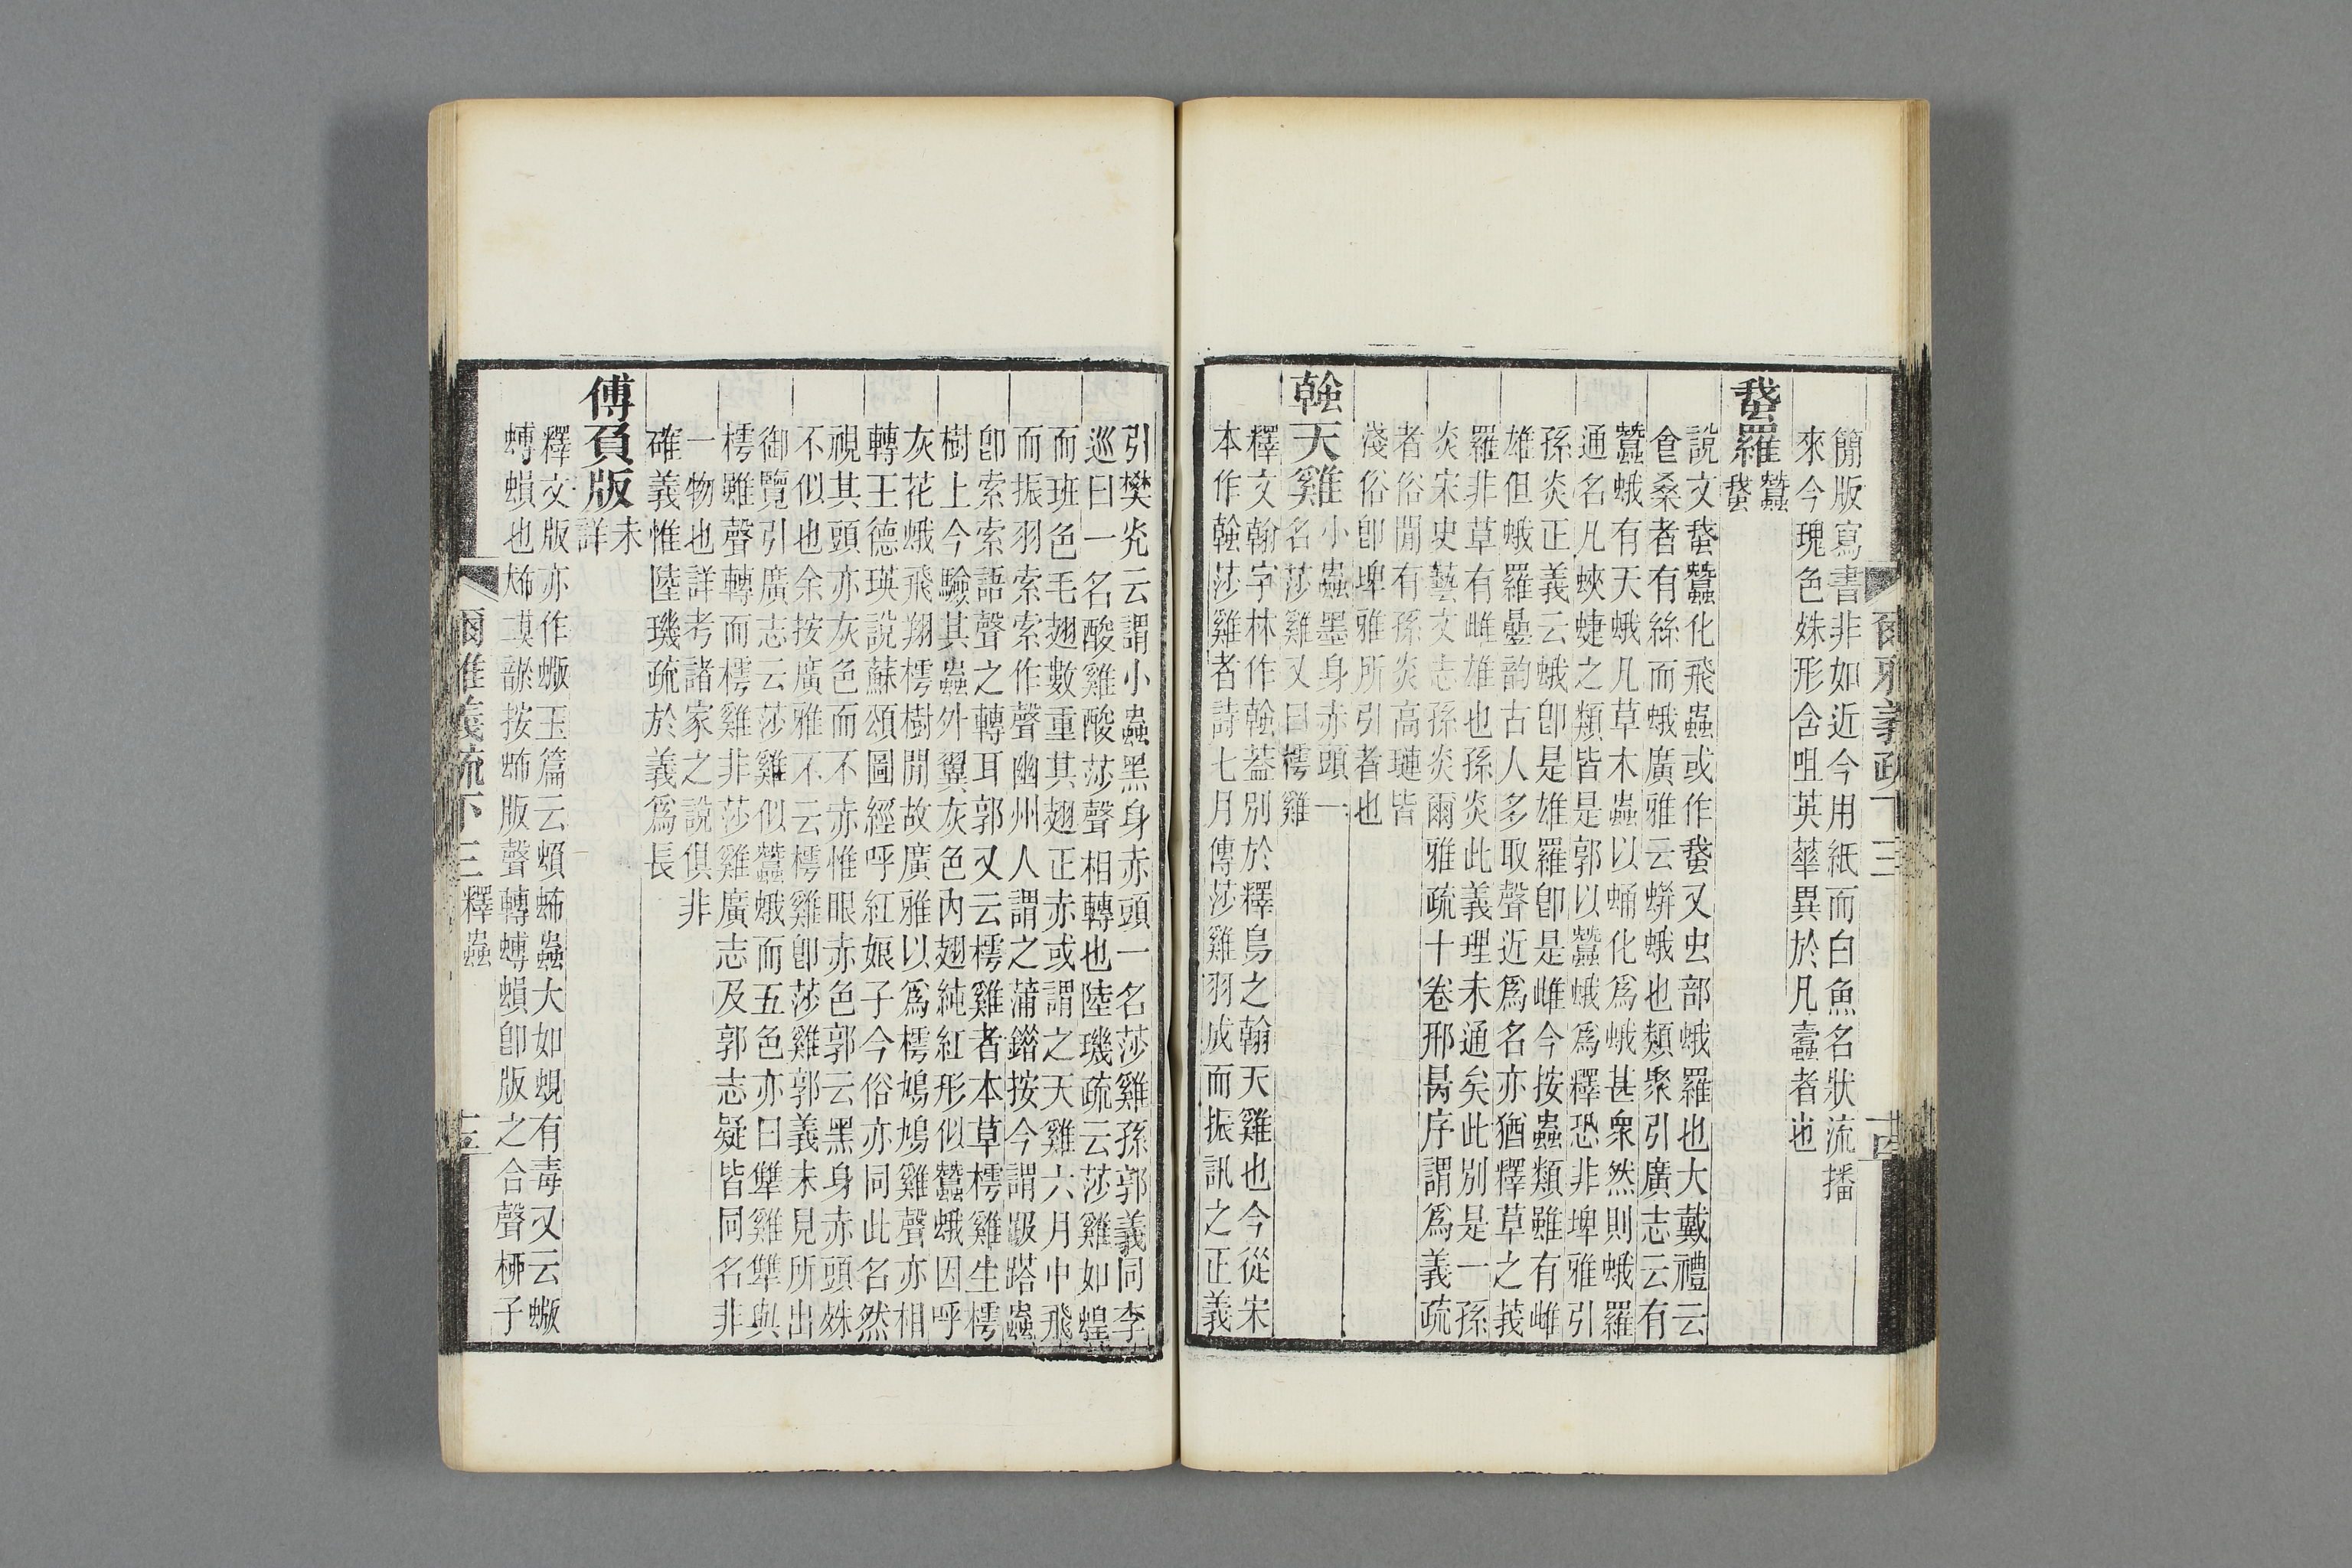 爾雅義疏下三
十四
簡版寫書非如近今用紙而白魚名狀流播
來今瑰色姝形含咀英華異於凡蠹者也
䖸羅
蠶
䖸
說文䖸蠶化飛蟲或作䖸又虫部蛾羅也大戴禮云
食桑者有絲而蛾廣雅云蛢蛾也類聚引廣志云有
蠶蛾有天蛾凡草木蟲以蛹化爲蛾甚衆然則蛾羅
通名凡蛺蜨之類皆是郭以蠶蛾爲釋恐非埤雅引
孫炎正義云蛾卽是雄羅卽是雌今按蟲類雖有雌
雄但蛾羅曡韵古人多取聲近爲名亦猶釋草之莪
羅非草有雌雄也孫炎此義理未通矣此別是一孫
炎宋史藝文志孫炎爾雅疏十卷邢昺序謂爲義疏
者俗閒有孫炎高璉皆
淺俗卽埤雅所引者也
螒天雞
小蟲墨身赤頭一
名莎雞又曰樗雞
釋文翰字林作螒葢別於釋鳥之翰天雞也今從宋
本作螒莎雞者詩七月傳莎雞羽成而振訊之正義
引樊光云謂小蟲黑身赤頭一名莎雞孫郭義同李
巡曰一名酸雞酸莎聲相轉也陸璣疏云莎雞如蝗
而班色毛翅數重其翅正赤或謂之天雞六月中飛
而振羽索索作聲幽州人謂之蒲鐕按今謂跋踏蟲
卽索索語聲之轉耳郭又云樗雞者本草樗雞生樗
樹上今驗其蟲外翼灰色內翅純紅形似蠶蛾因呼
灰花蛾飛翔樗樹閒故廣雅以爲樗鳩鳩雞聲亦相
轉王德瑛說蘇頌圖經呼紅娘子今俗亦同此名然
視其頭亦灰色而不赤惟眼赤色郭云黑身赤頭姝
不似也余按廣雅不云樗雞卽莎雞郭義未見所出
御覽引廣志云莎雞似蠶蛾而五色亦曰犨雞犨與
樗雖聲轉而樗雞非莎雞廣志及郭志疑皆同名非
一物也詳考諸家之說俱非
確義惟陸璣疏於義爲長
傅負版
未
詳
釋文版亦作蝂玉篇云蝜䗁蟲大如蜆有毒又云蝂
䗁蝂聲轉䗚蝜卽版之合聲桺子
爾雅義疏下三 釋蟲